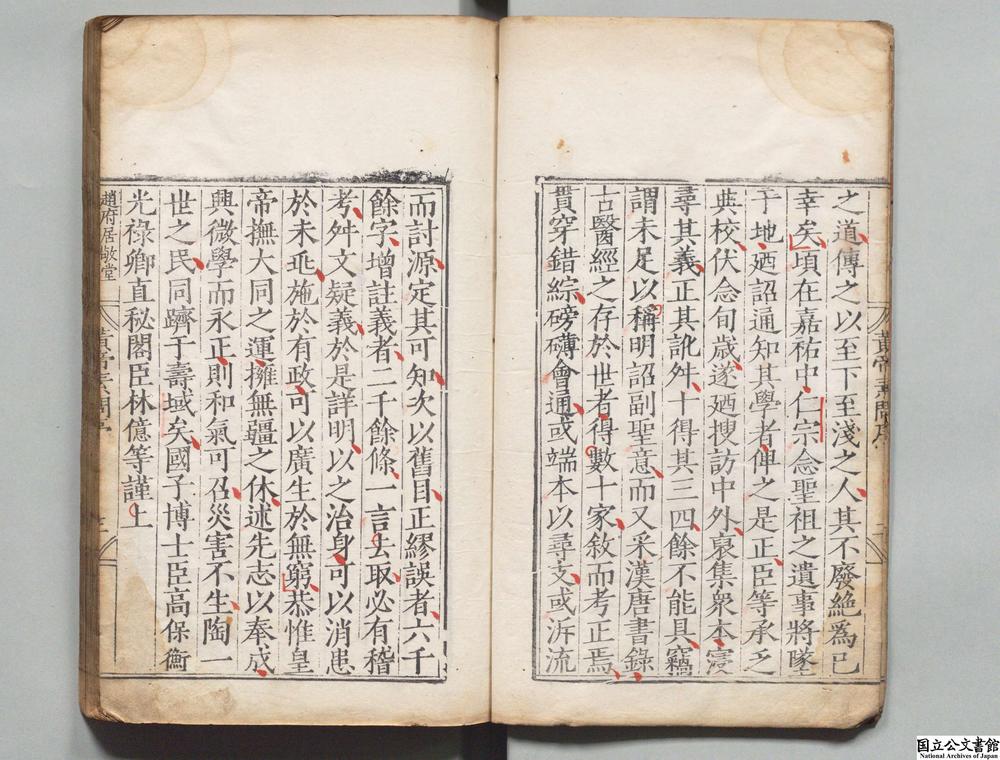 之道傳之以至下至淺之人其不廢絶爲已
幸矣頃在嘉祐中仁宗念聖祖之遺事將墜
于地廼詔通知其學者俾之是正臣等承乏
典校伏念旬歲遂廼搜訪中外裒集衆本寖
尋其義正其訛舛十得其三四餘不能具竊
謂未足以稱明詔副聖意而又采漢唐書錄
古醫經之存於世者得數十家敘而考正焉
貫穿錯綜磅礴會通或端本以尋支或泝流
而討源定其可知次以舊目正繆誤者六千
餘字增註義者二千餘條一言去取必有稽
考舛文疑義於是詳明以之治身可以消患
於未兆施於有政可以廣生於無窮恭惟皇
帝撫大同之運擁無疆之休述先志以奉成
興微學而永正則和氣可召災害不生陶一
世之民同躋于壽域矣國子博士臣高保衡
光祿卿直秘閣臣林億等謹上
黃帝素問序
二
趙府居敬堂
黃帝素問序
国立公文書館
National Archives of Japan